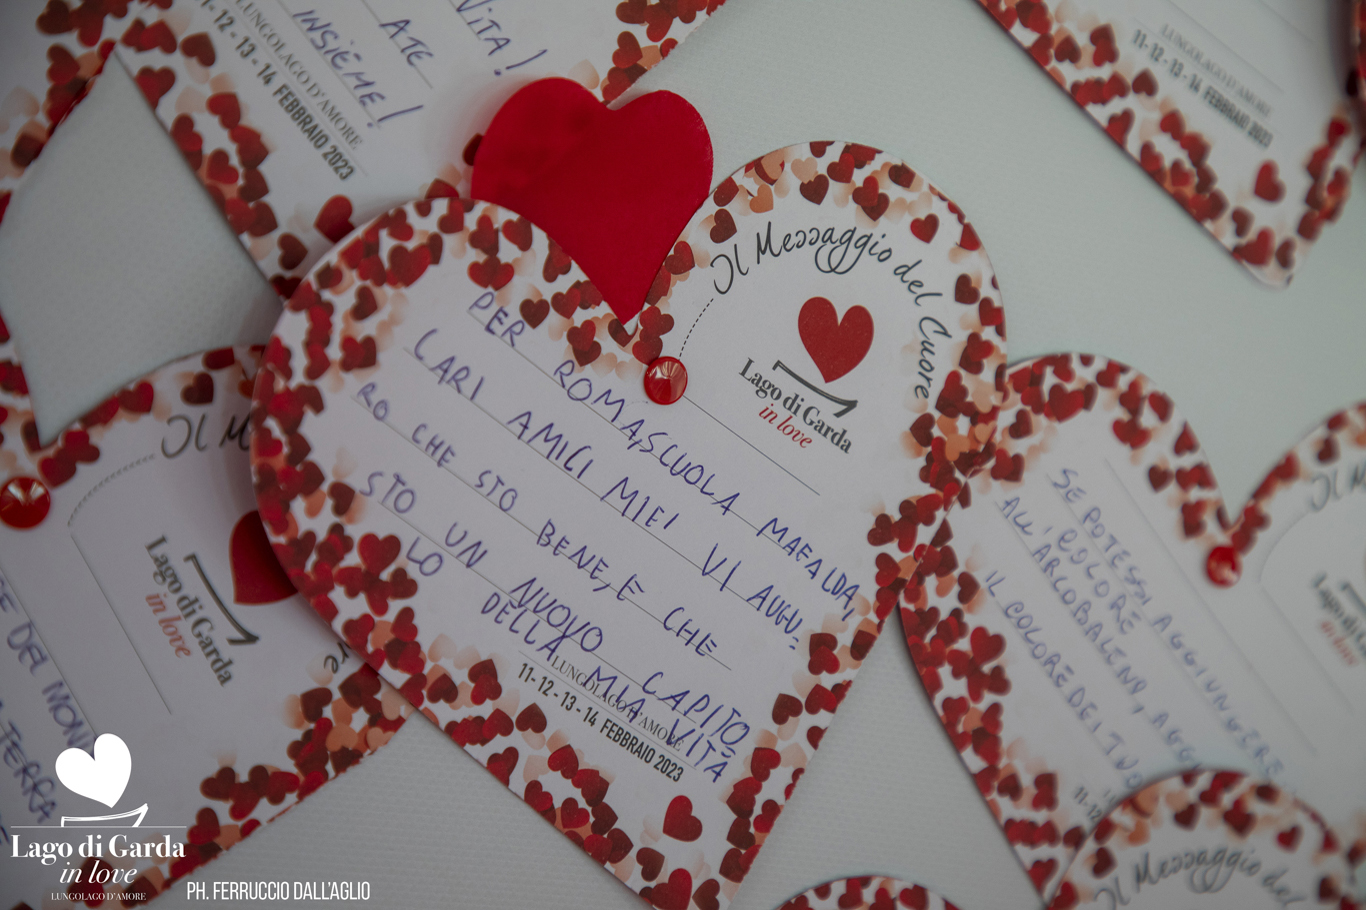 VITA!
ATE
INSIEME!
LUNGOLAGO D'AMORE
11-12-13-14 FEBBRAIO 2023
LUNGOLAGO D'AMORE
11-12-13-14 FEBBRAIO 2023
Il Messaggio del Cuore
Lago di Garda
in love
PER ROMA, SCUOLA MAFALDA,
CARI AMICI MIEI VI AUGU-
RO CHE STO BENE, E CHE
STO UN NUOVO CAPITO
LO DELLA MIA VITA
LUNGOLAGO D'AMORE
11-12-13-14 FEBBRAIO 2023
Il M
Lago di Garda
in love
DEL MON
TERRA
SE POTESSI AGGIUNGERE
1 COLORE
ALL'ARCOBALENO, AGG
IL COLORE DEI TUO
11-12
Il M
Lago di
in love
Il Messaggio del
Lago di Garda
in love
LUNGOLAGO D'AMORE
PH. FERRUCCIO DALL'AGLIO